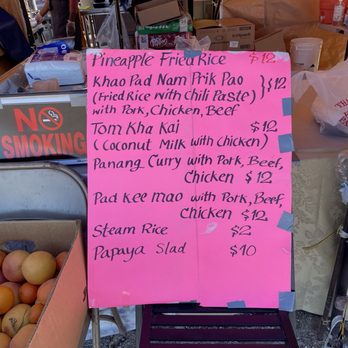 Pineapple Fried Rice $12
Khao Pad Nam Prik Pao
(Fried Rice with Chili Paste) } $12
with Pork, Chicken, Beef
Tom Kha Kai $12
(Coconut Milk with Chicken)
Panang Curry with Pork, Beef,
Chicken $12
Pad Kee mao with Pork, Beef,
Chicken $12
Steam Rice $2
Papaya Slad $10
NO
SMOKING